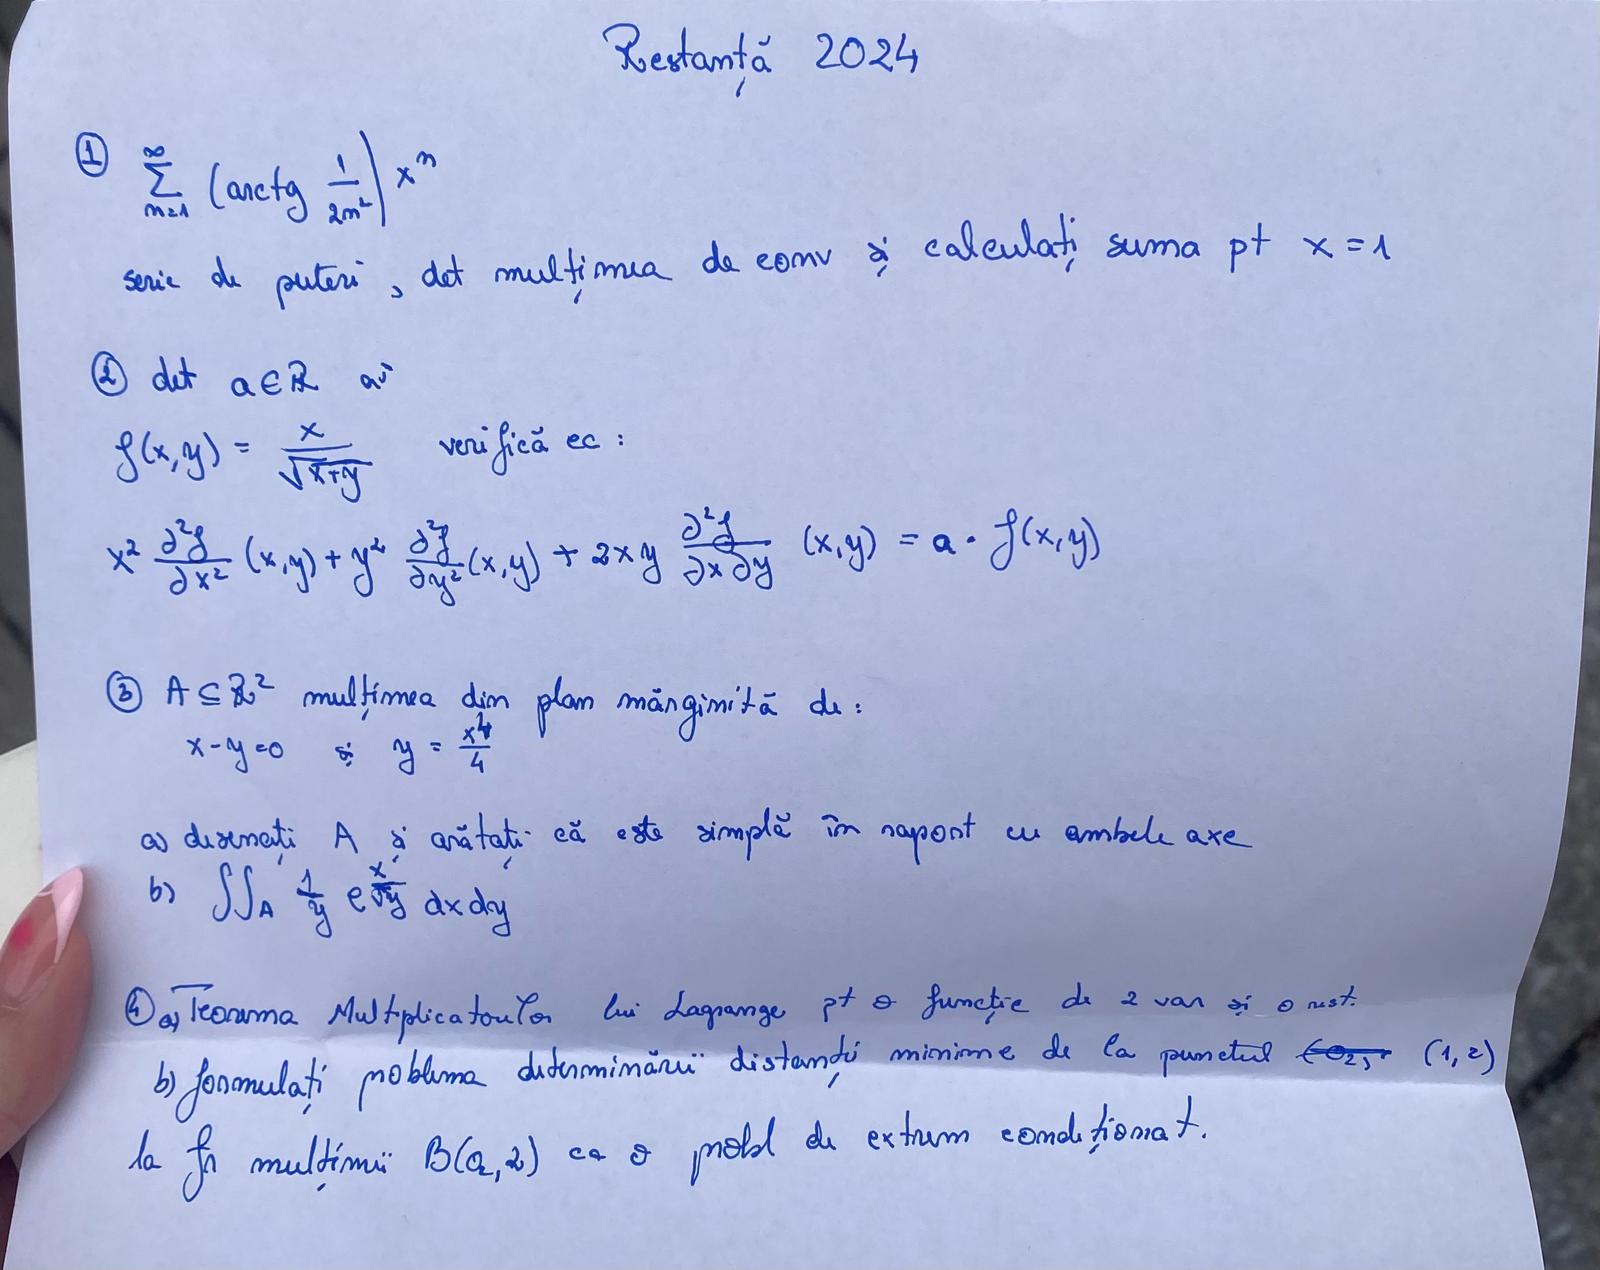 Restanță 2024
① ∑_{n=1}^{∞} (arctg 1/2n²) xⁿ
serie de puteri, det mulțimea de conv și calculați suma pt x = 1
② det a∈ℝ aî
f(x,y) = x/√(x+y) verifică ec :
x² ∂²f/∂x² (x,y) + y² ∂²f/∂y² (x,y) + 2xy ∂²f/∂x∂y (x,y) = a · f(x,y)
③ A ⊆ ℝ² mulțimea din plan mărginită de :
x-y=0 și y =
a) desenați A și arătați că este simplă în raport cu ambele axe
b) ∬_A 1/y e^{x/√y} dx dy
④ a) Teorema Multiplicatorilor lui Lagrange pt o funcție de 2 var și o rest.
b) formulați problema determinării distanței minime de la punctul (1,2)
la fr mulțimii B(0₂,2) ca o probl de extrem condiționat.